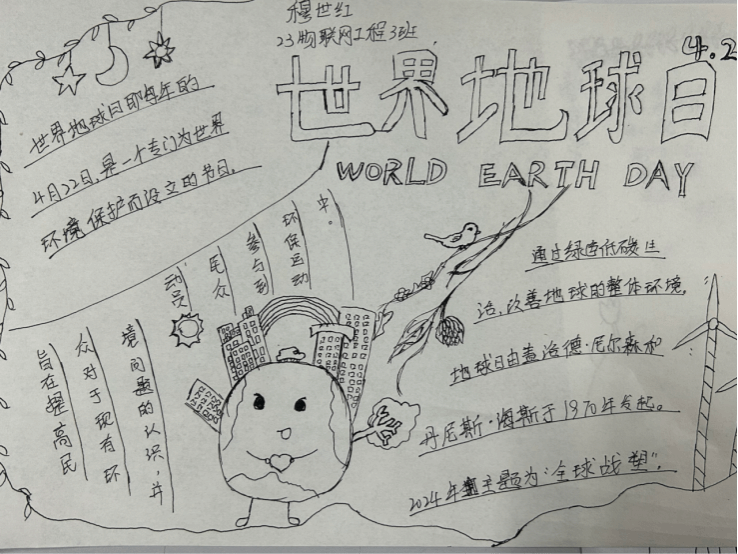 穆世红
23物联网工程3班
4.2
世界地球日
WORLD EARTH DAY
世界地球日即每年的
4月22日,是一个专门为世界
环境保护而设立的节日,
旨在提高民
众对于现有环
境问题的认识,并
动员
民众
参与到
环保运动
中。
通过绿色低碳生
活,改善地球的整体环境,
地球日由盖洛德·尼尔森和
丹尼斯·海斯于1970年发起。
2024年主题为"全球战塑".